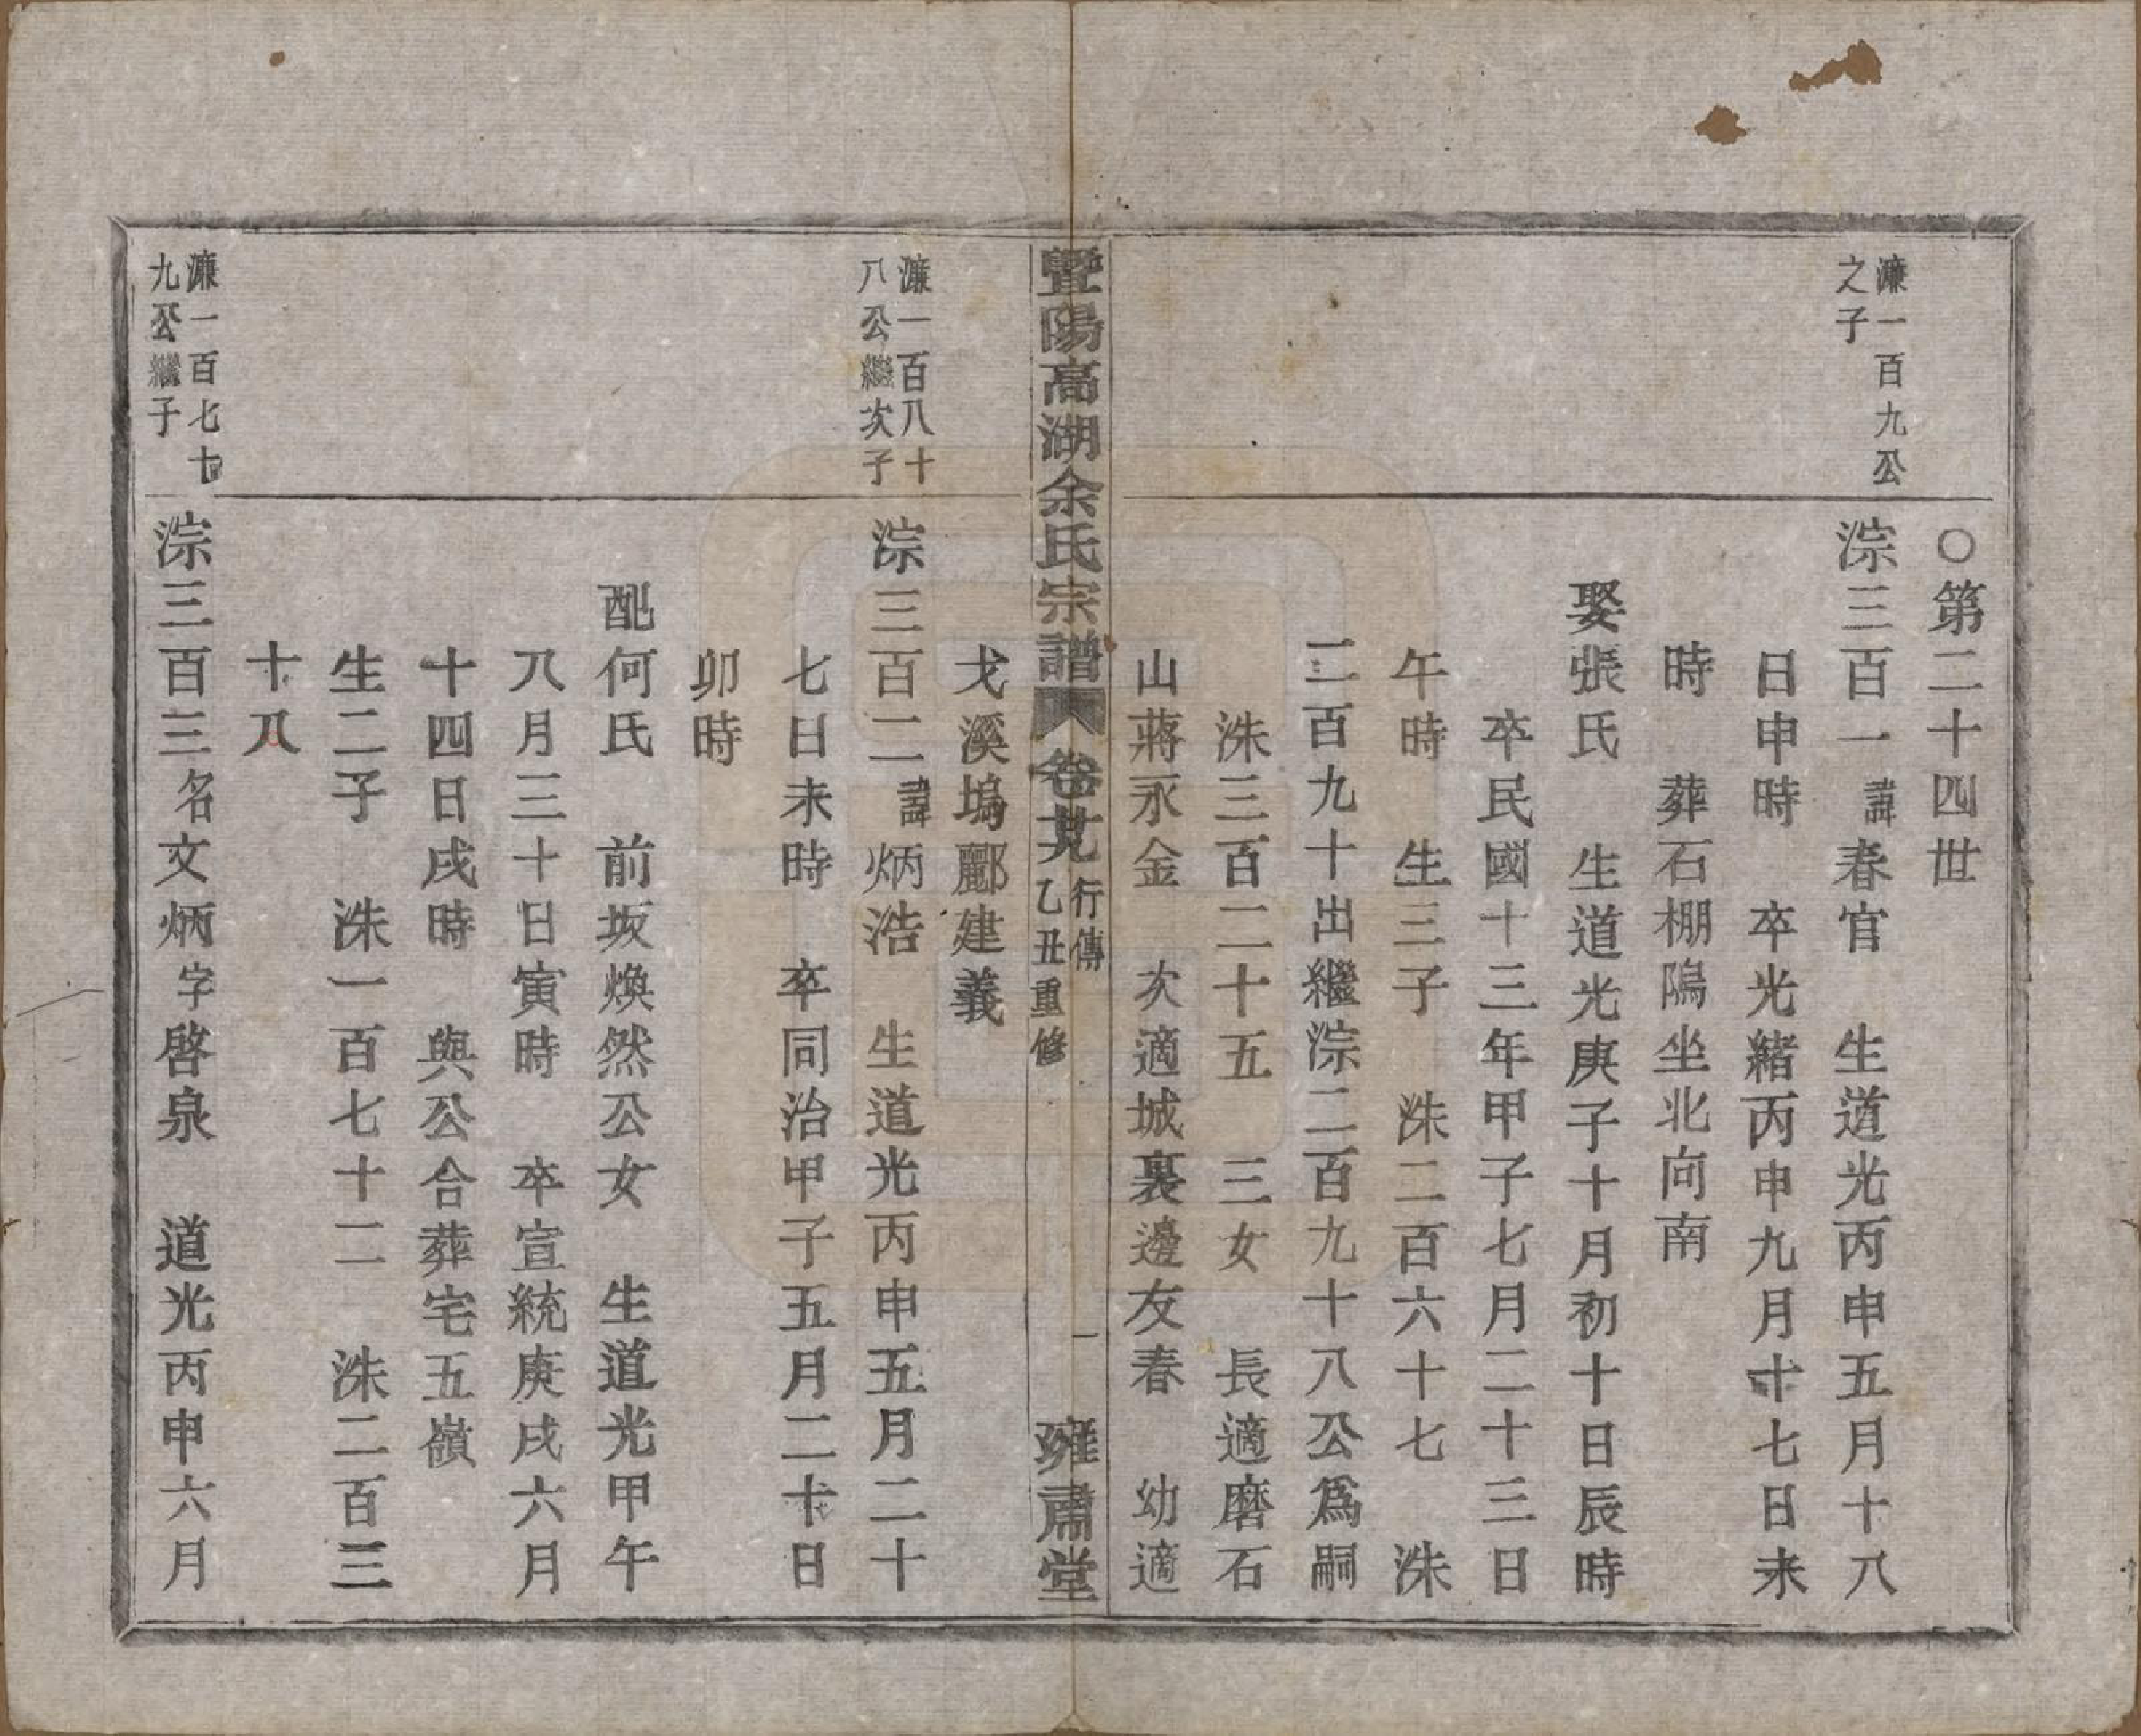 〇第二十四世
濂一百九公
之子
淙三百一諱春官　生道光丙申五月十八
日申時　卒光緒丙申九月十七日未
時　葬石棚隝坐北向南
娶張氏　生道光庚子十月初十日辰時
卒民國十三年甲子七月二十三日
午時　生三子　洙二百六十七　洙
二百九十出繼淙二百九十八公爲嗣
洙三百二十五　三女　長適磨石
山蔣永金　次適城裏邊友春　幼適
暨陽高湖余氏宗譜
卷廿九
行傳
乙丑重修
一
雍肅堂
戈溪塢酈建義
濂一百八十
八公繼次子
淙三百二諱炳浩　生道光丙申五月二十
七日未時　卒同治甲子五月二十日
卯時
配何氏　前坂煥然公女　生道光甲午
八月三十日寅時　卒宣統庚戌六月
十四日戌時　與公合葬宅五嶺
生二子　洙一百七十二　洙二百三
十八
濂一百七十
九公繼子
淙三百三名文炳字啓泉　道光丙申六月